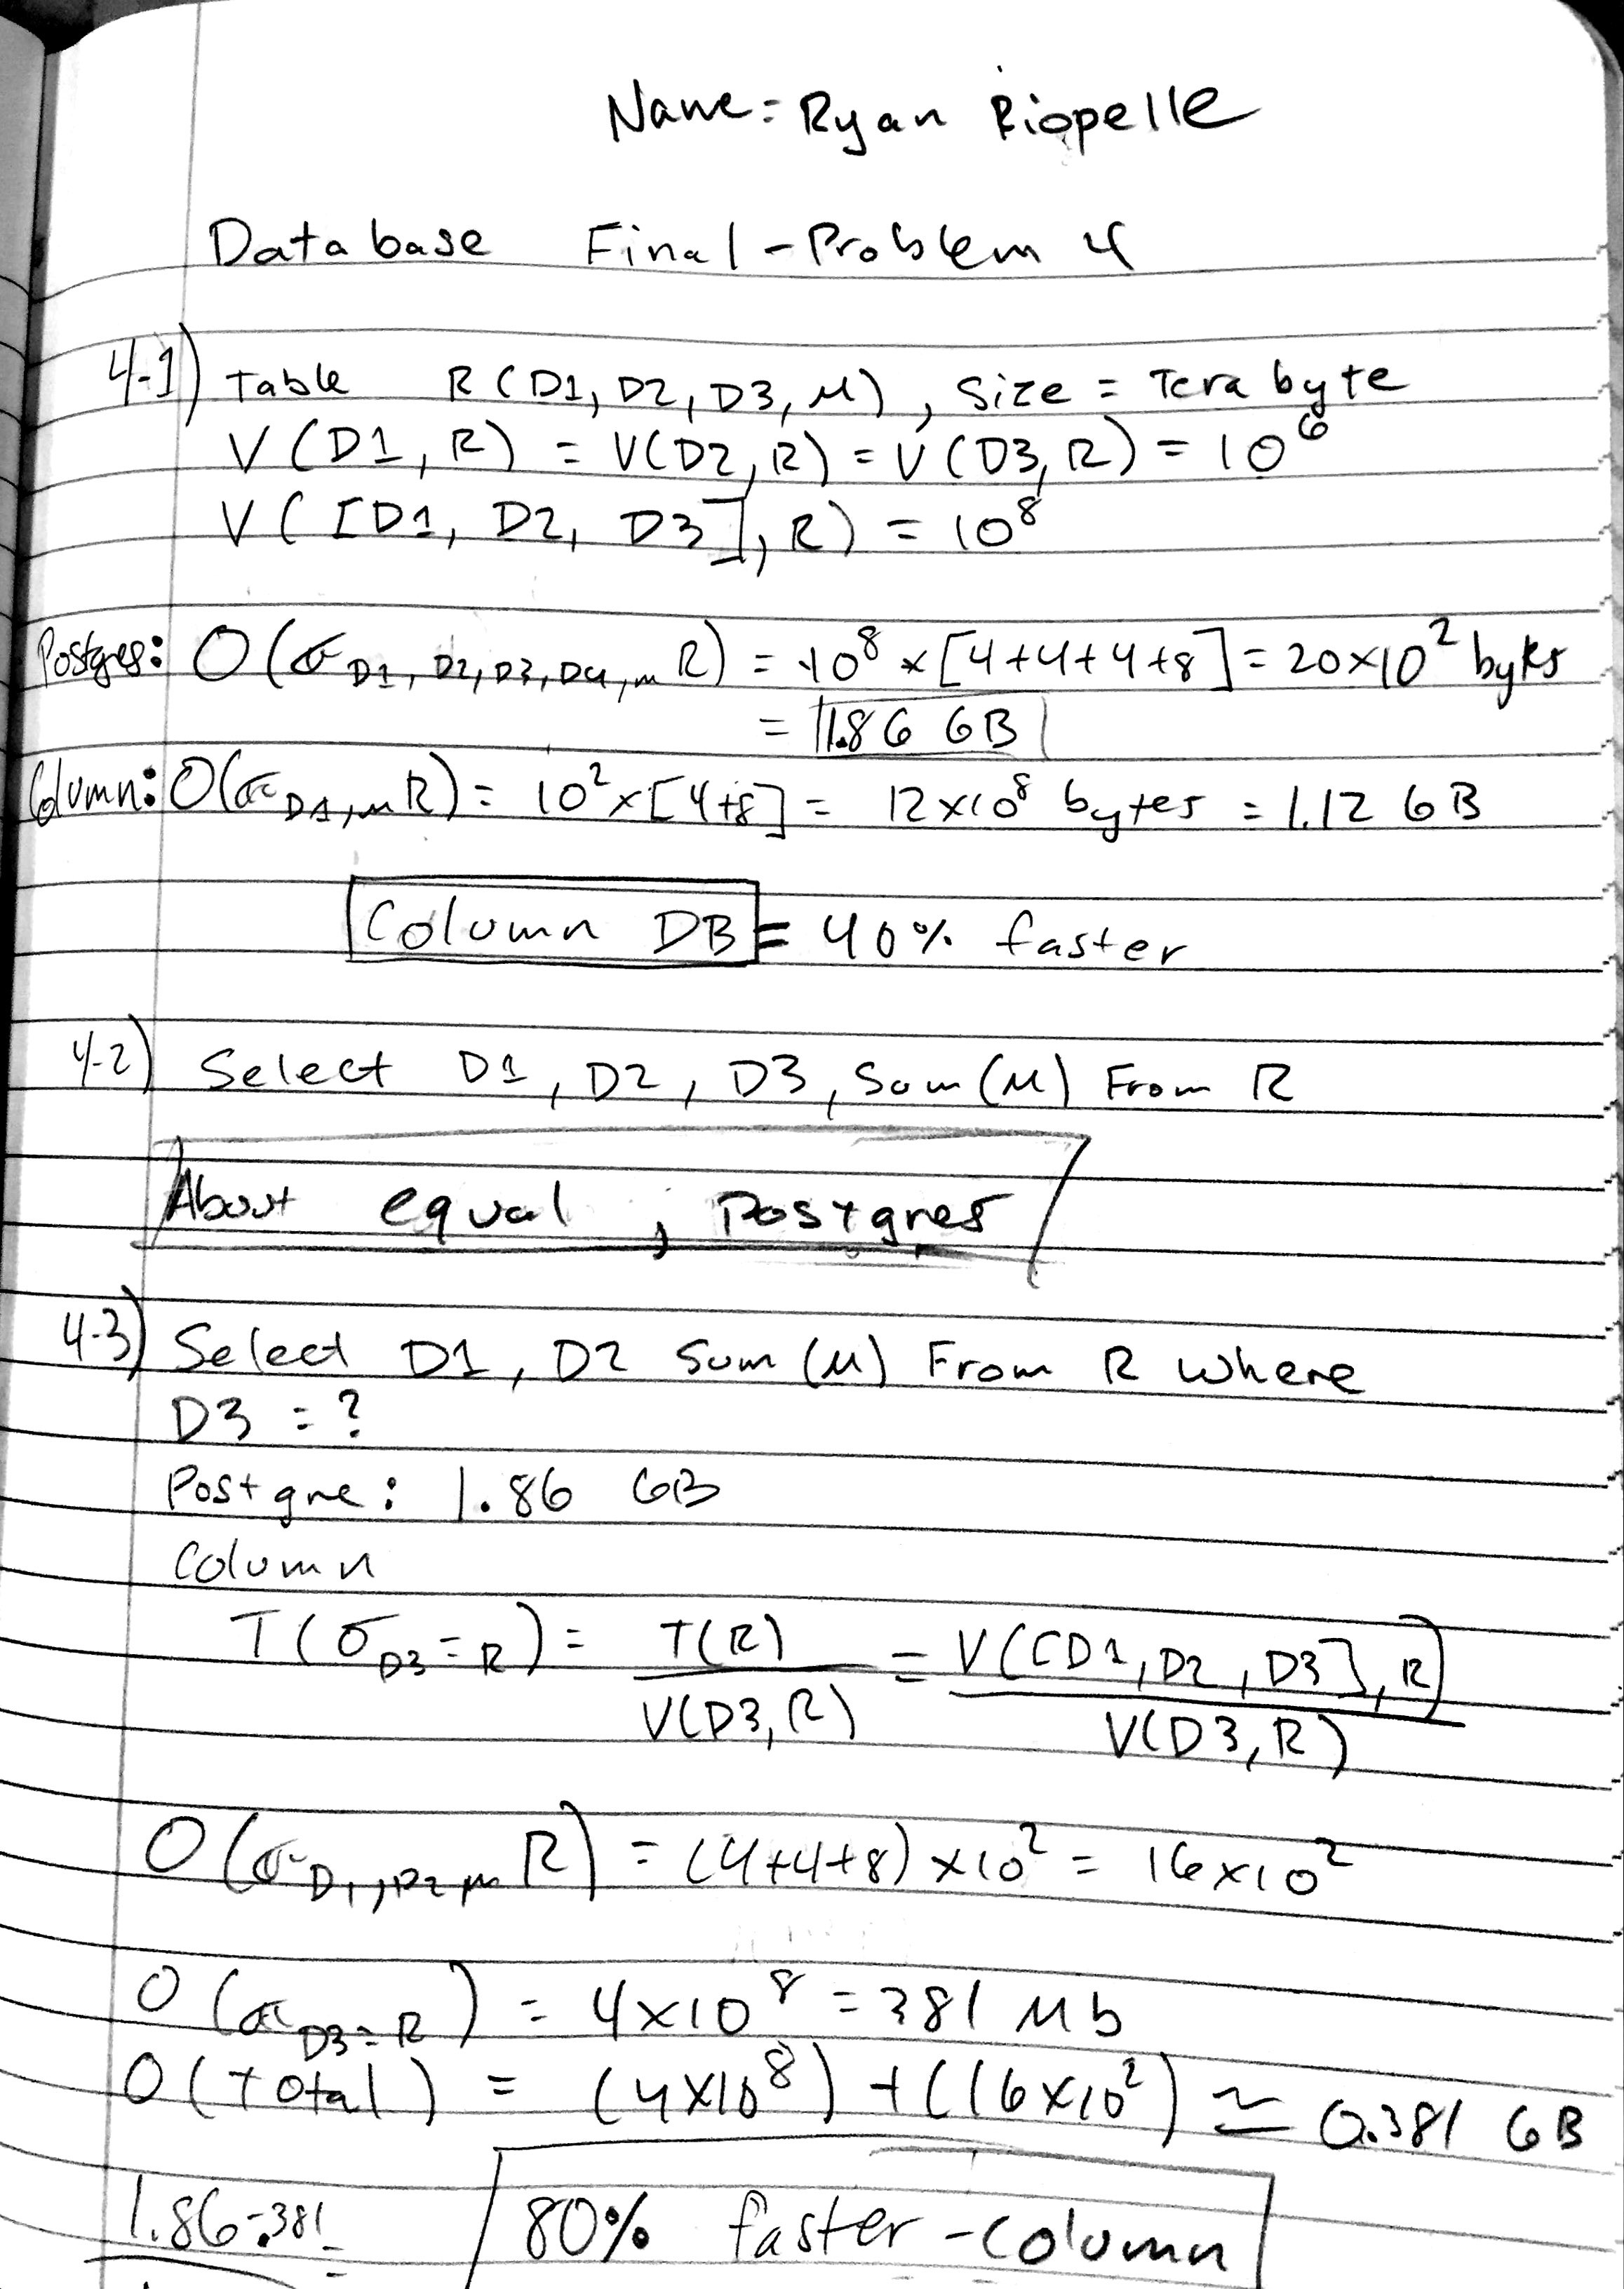 Name = Ryan Riopelle
Database Final - Problem 4
4-1) Table R(D1, D2, D3, M), Size = Terabyte
V(D1, R) = V(D2, R) = V(D3, R) = 10^6
V([D1, D2, D3], R) = 10^8
Postgres: O(σ D1, D2, D3, D4, m R) = 10^8 × [4+4+4+8] = 20×10^2 bytes
= 1.86 GB
Column: O(σ D1, m R) = 10^2 × [4+8] = 12×10^8 bytes = 1.12 GB
Column DB = 40% faster
4-2) Select D1, D2, D3, Sum(M) From R
About equal, Postgres
4-3) Select D1, D2 Sum(M) From R Where
D3 = ?
Postgre: 1.86 GB
Column
T(σ D3=R) = T(R) / V(D3, R) = V([D1, D2, D3], R) / V(D3, R)
O(σ D1, D2, m R) = (4+4+8) ×10^2 = 16×10^2
O(σ D3=R) = 4×10^8 = 381 Mb
O(Total) = (4×10^8) + (16×10^2) ≃ 0.381 GB
1.86-.381 = 80% faster - column